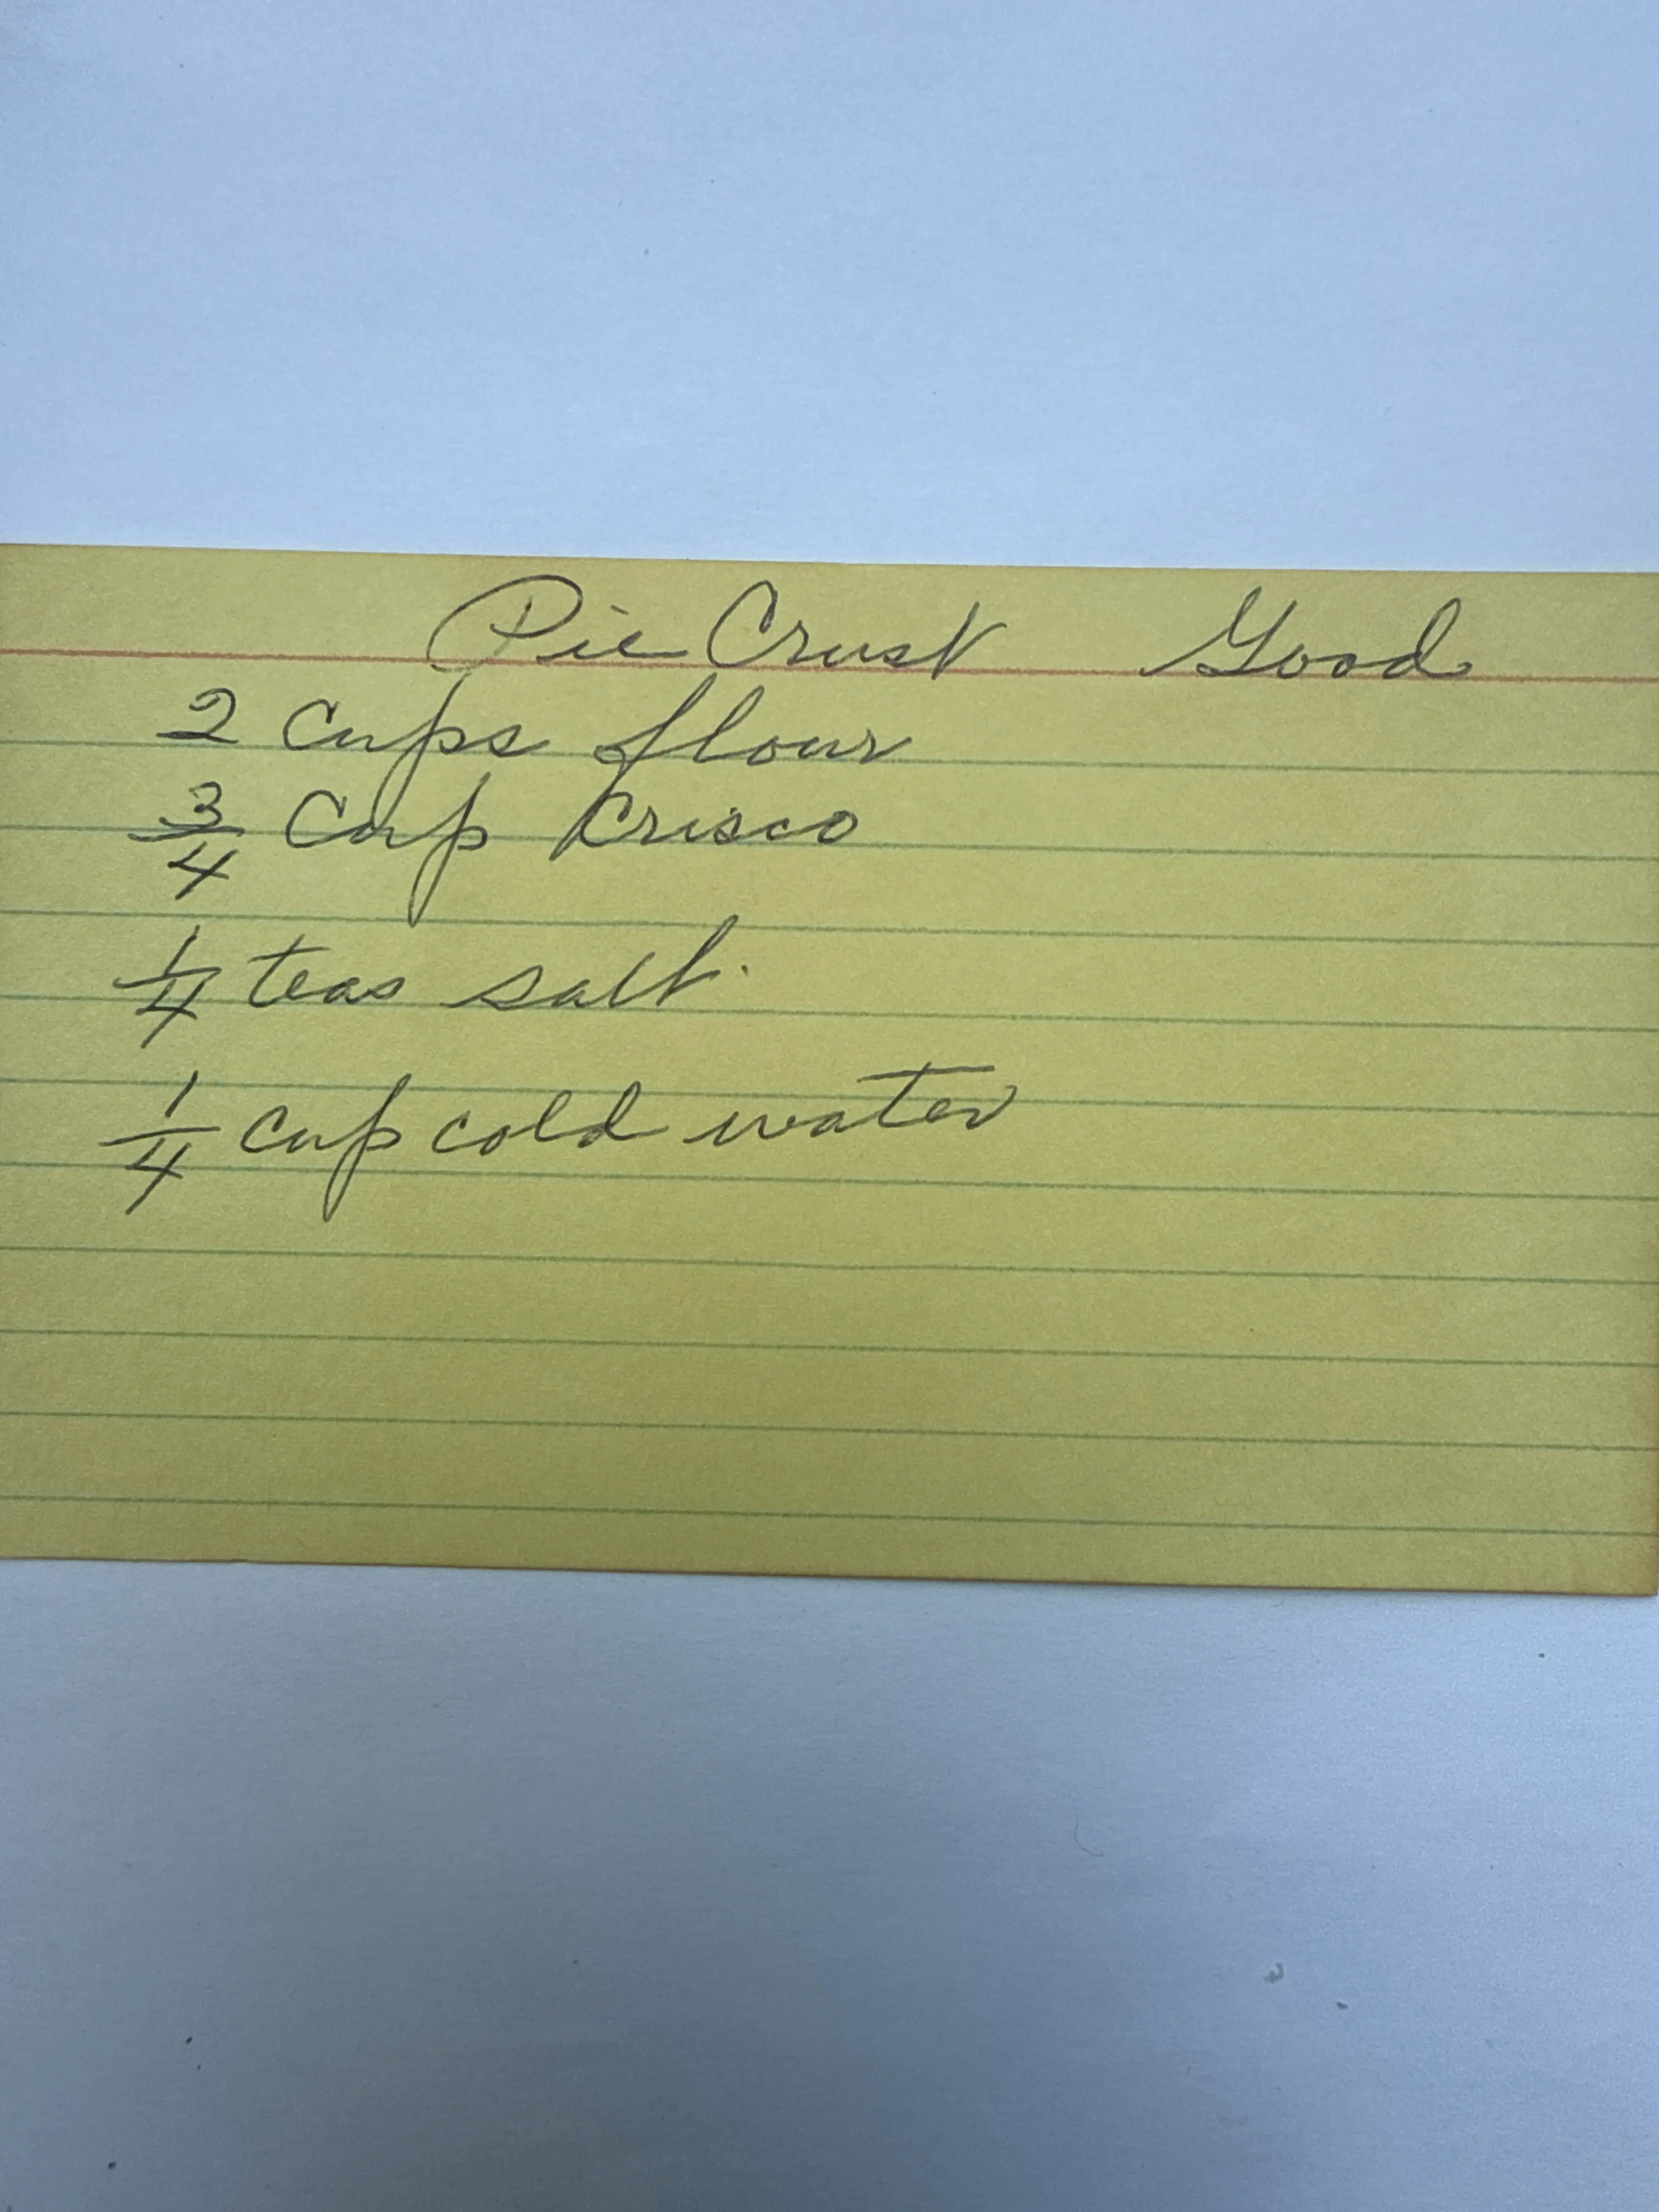 Pie Crust Good
2 cups flour
3/4 Cup Crisco
1/4 teas salt.
1/4 cup cold water